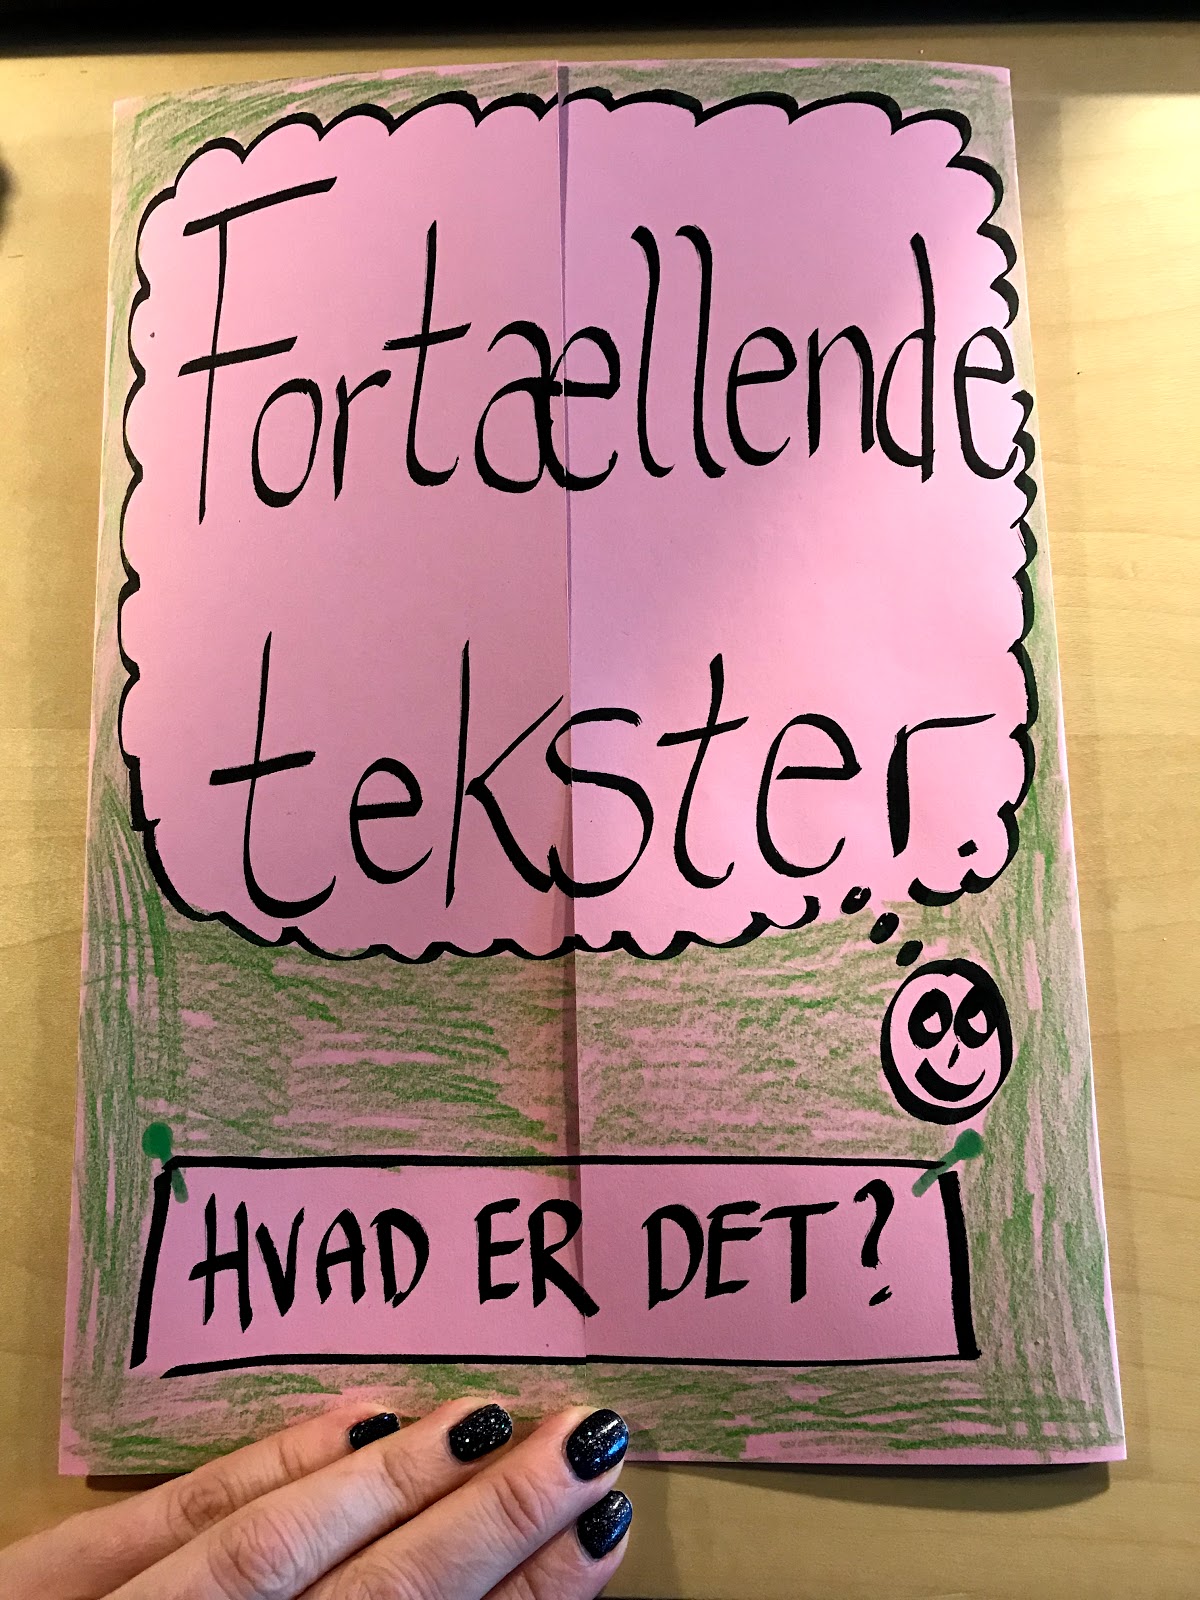 Fortællende
tekster.
HVAD ER DET?